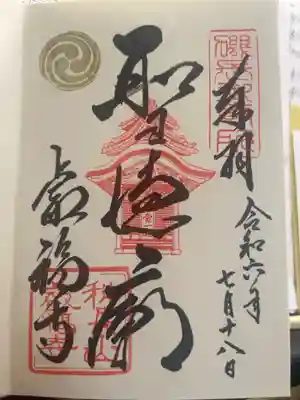 奉拝
令和六年
七月十八日
聖徳廟
叡福寺